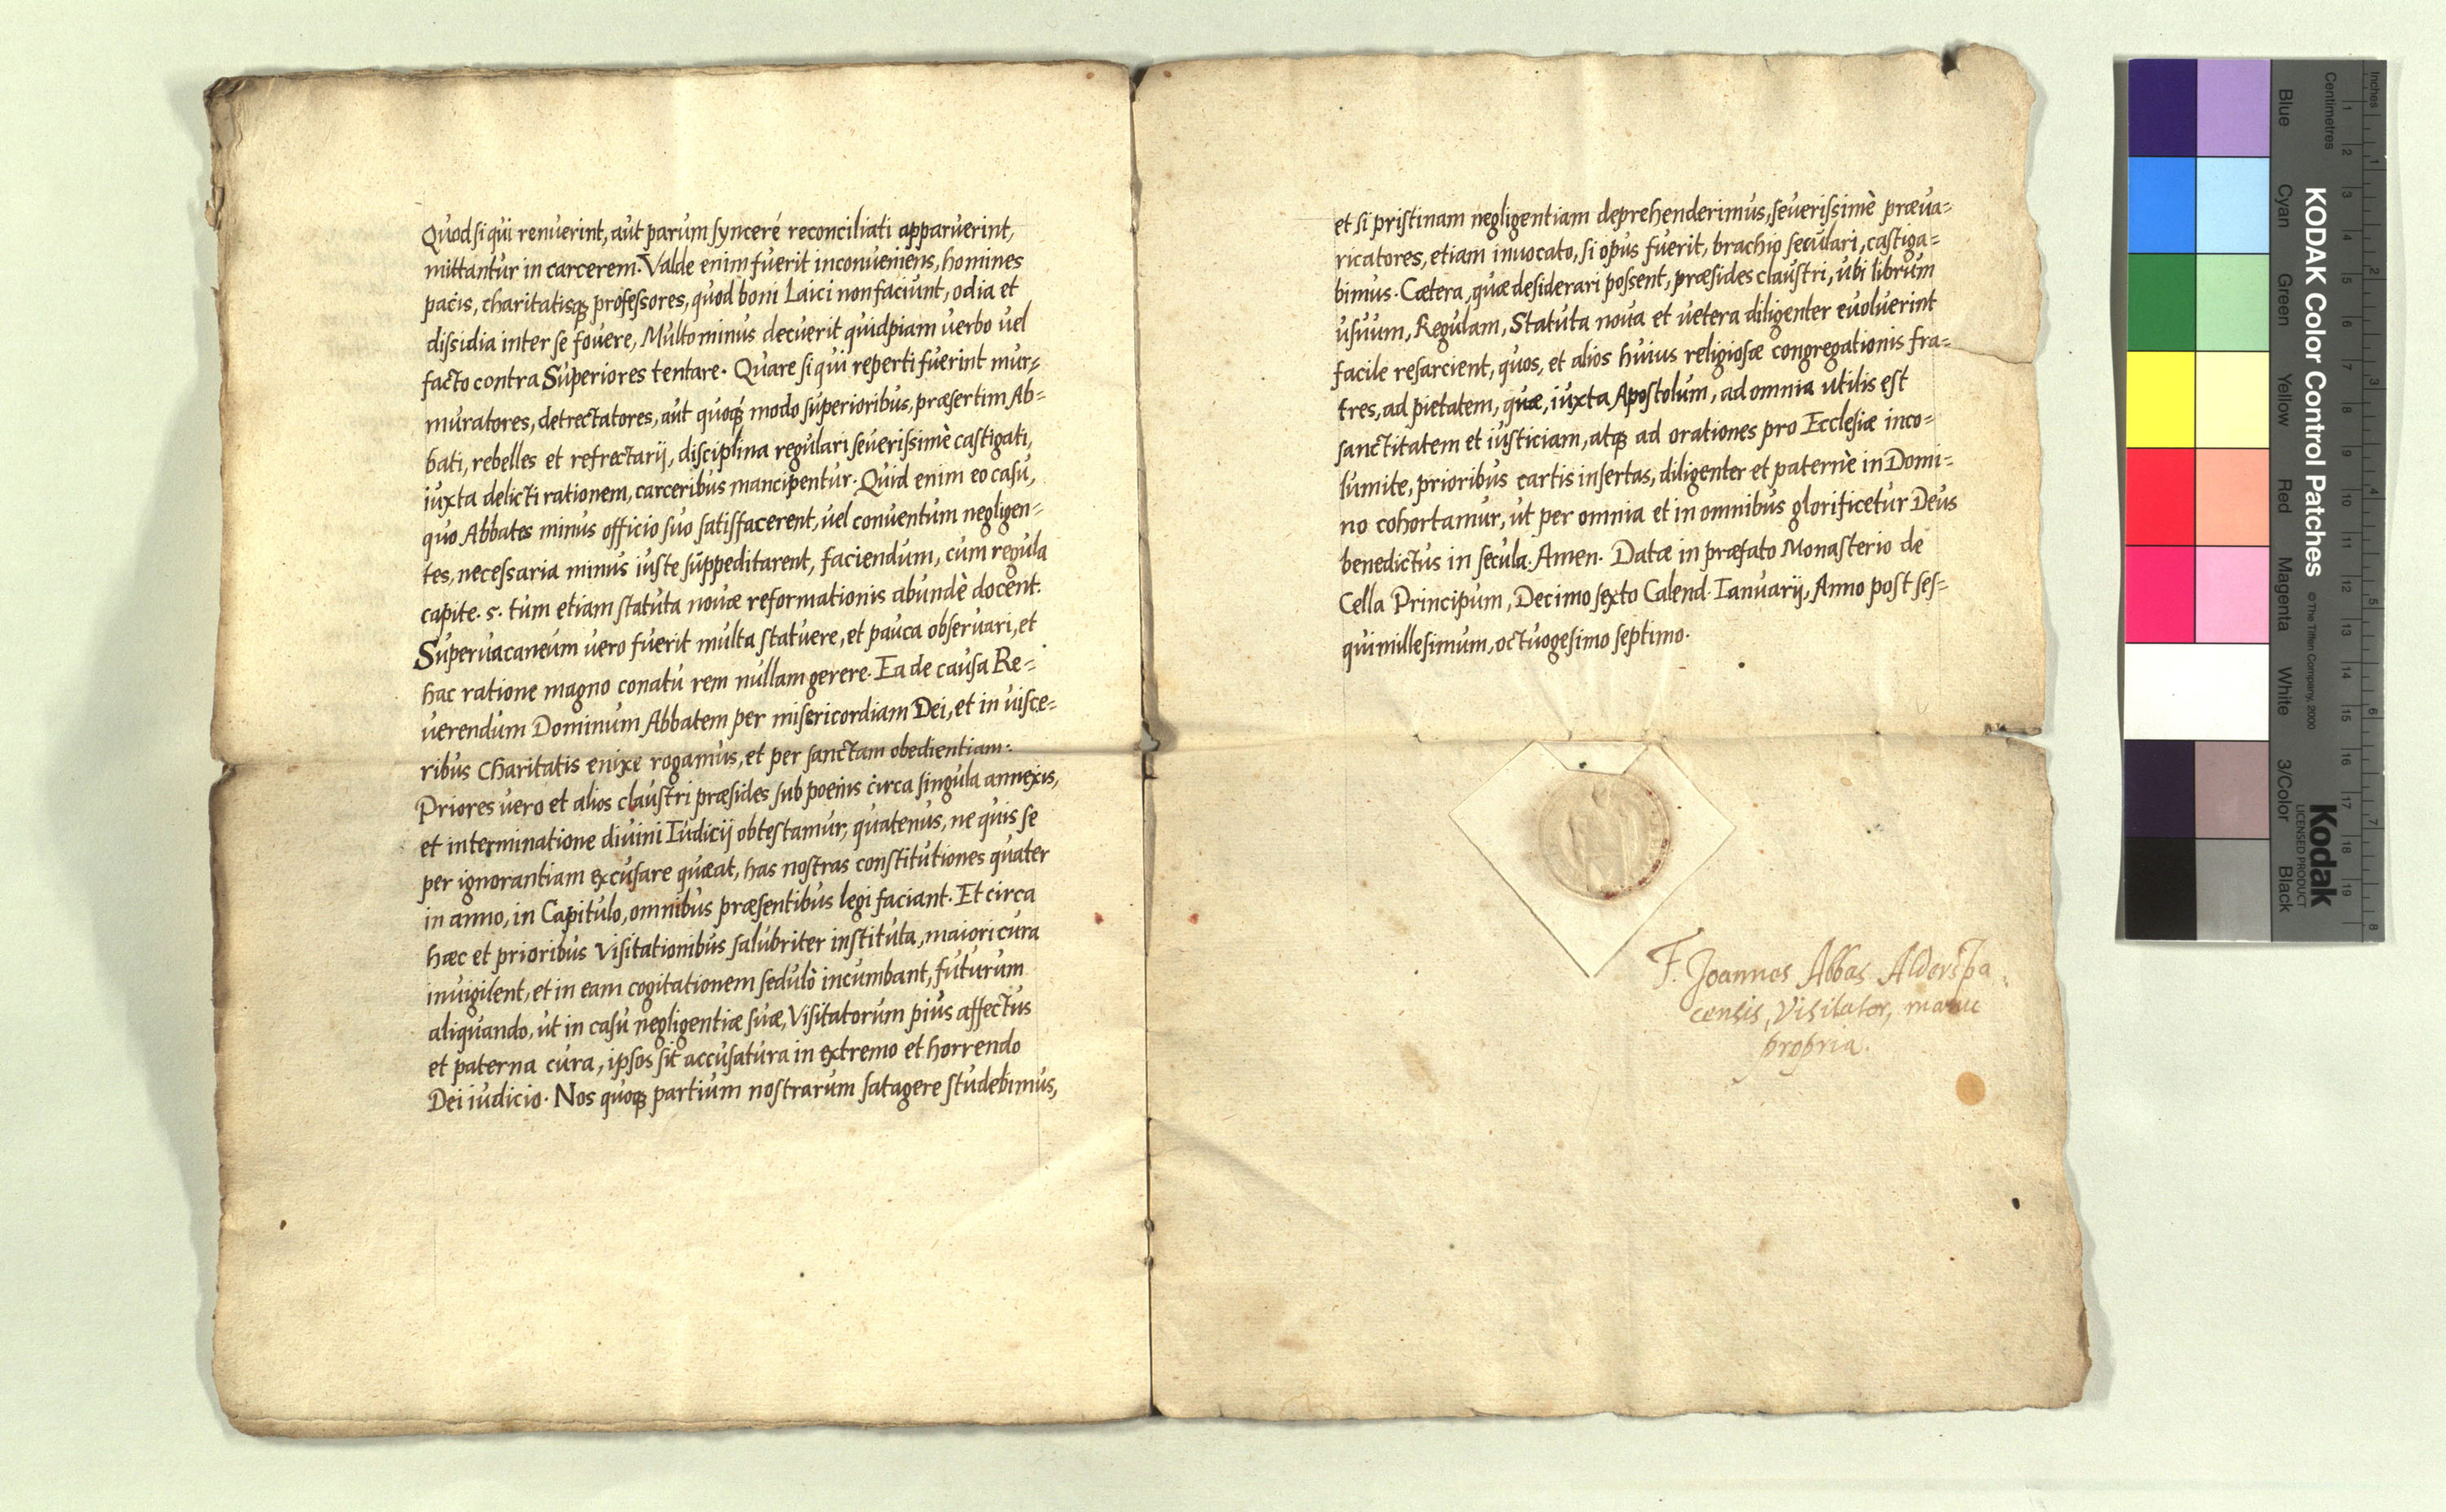 Quod si qui renuerint, aut parum synceré reconciliati apparuerint,
mittantur in carcerem. Valde enim fuerit inconueniens, homines
pacis, charitatisq professores, quod boni Laici non faciunt, odia et
dissidia inter se fouere, Multo minus decuerit quidpiam uerbo uel
facto contra Superiores tentare. Quare si qui reperti fuerint mur=
muratores, detrectatores, aut quoq modo superioribus, præsertim Ab=
bati, rebelles et refrectarij, disciplina regulari seuerissimè castigati,
iuxta delicti rationem, carceribus mancipentur. Quid enim eo casu,
quo Abbates minus officio suo satisfacerent, uel conuentum negligen=
tes, necessaria minus iuste suppeditarent, faciendum, cum regula
capite. 5. tum etiam statuta nouæ reformationis abundè docent.
Superuacaneum uero fuerit multa statuere, et pauca obseruari, et
hac ratione magno conatu rem nullam gerere. Ea de causa Re=
uerendum Dominum Abbatem per misericordiam Dei, et in uisce=
ribus Charitatis enixe rogamus, et per sanctam obedientiam.
Priores uero et alios claustri præsides sub poenis circa singula annexis,
et interminatione diuini Iudicij obtestamur, quatenus, ne quis se
per ignorantiam excusare quæat, has nostras constitutiones quater
in anno, in Capitulo, omnibus præsentibus legi faciant. Et circa
hæc et prioribus Visitationibus salubriter instituta, maiori cura
inuigilent, et in eam cogitationem sedulò incumbant, futurum
aliquando, ut in casu negligentiæ suæ, Visitatorum pius affectus
et paterna cura, ipsos sit accusatura in extremo et horrendo
Dei iudicio. Nos quoq partium nostrarum satagere studebimus,
et si pristinam negligentiam deprehenderimus, seuerissimè præua=
ricatores, etiam inuocato, si opus fuerit, brachio seculari, castiga=
bimus. Cætera, quæ desiderari possent, præsides claustri, ubi librum
usuum, Regulam, Statuta noua et uetera diligenter euoluerint
facile resarcient, quos, et alios huius religiosæ congregationis fra=
tres, ad pietatem, quæ, iuxta Apostolum, ad omnia utilis est
sanctitatem et iusticiam, atq ad orationes pro Ecclesiæ inco=
lumite, prioribus cartis insertas, diligenter et paternè in Domi=
no cohortamur, ut per omnia et in omnibus glorificetur Deus
benedictus in secula. Amen. Datæ in præfato Monasterio de
Cella Principum, Decimo sexto Calend. Ianuarij, Anno post ses=
quimillesimum, octuogesimo septimo.
F. Joannes Abbas Alderspa
censis, Visitator, manu
propria.
Inches
Centimetres
1 2 3 4 5 6 7 8
1 2 3 4 5 6 7 8 9 10 11 12 13 14 15 16 17 18 19
Blue Cyan Green Yellow Red Magenta White 3/Color Black
KODAK Color Control Patches
© The Tiffen Company, 2000
Kodak
LICENSED PRODUCT